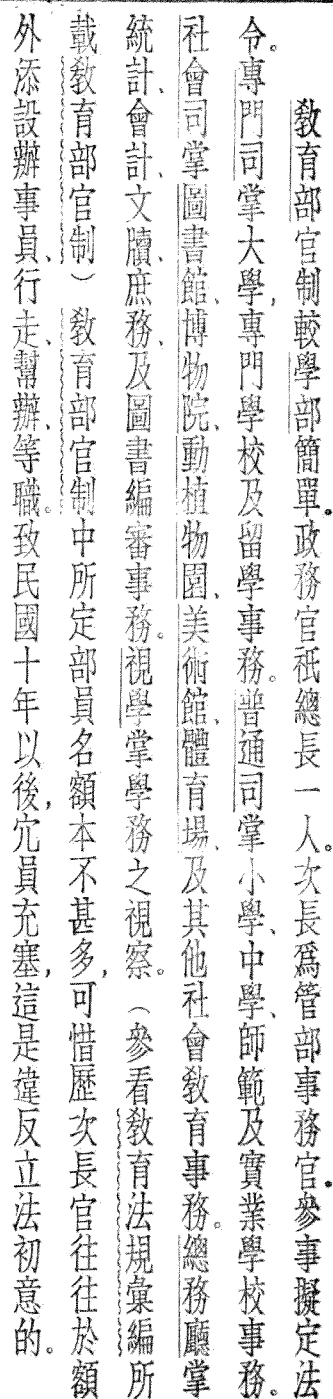 教育部官制較學部簡單。政務官祗總長一人。次長爲管部事務官。參事擬定法
令。專門司掌大學,專門學校及留學事務。普通司掌小學、中學、師範及實業學校事務。
社會司掌圖書館、博物院、動植物園、美術館、體育場、及其他社會敎育事務。總務廳掌
統計、會計、文牘、庶務、及圖書編審事務。視學掌學務之視察。(參看敎育法規彙編所
載敎育部官制) 敎育部官制中所定部員名額本不甚多,可惜歷次長官往往於額
外添設辦事員、行走、幫辦、等職。致民國十年以後,宂員充塞,這是違反立法初意的。